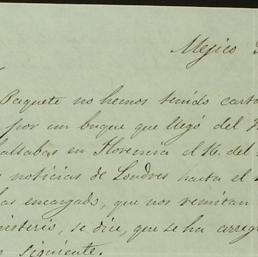 Mejico
Paquete no hemos tenido carta
por un buque que llegó del
hallabas en Florencia el 16. del
noticias de Londres hasta el
has encargado, que nos remitan
nisterio, se dice, que se ha arreg
siguiente.